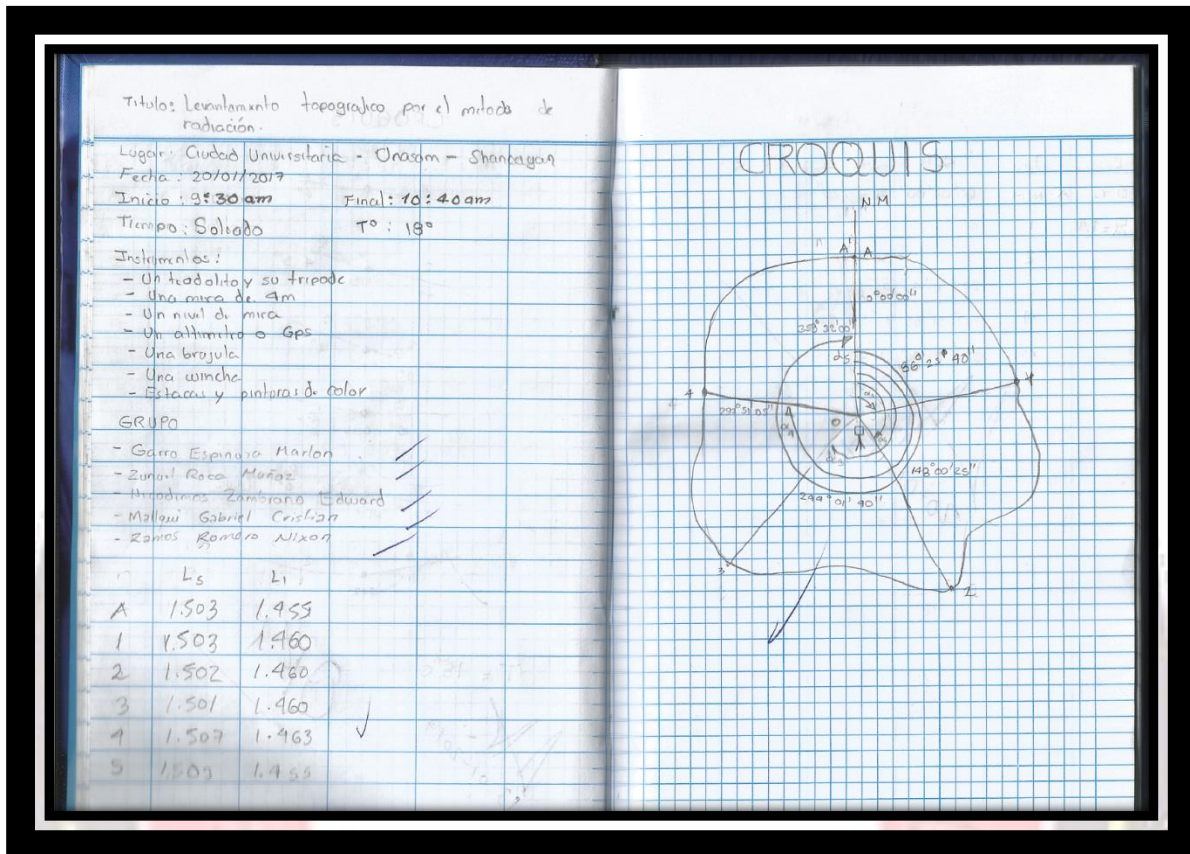 Titulo: Levantamiento topografico por el metodo de
radiación.
Lugar: Ciudad Universitaria - Unasam - Shancayan
Fecha: 20/01/2017
Inicio: 9:30 am Final: 10:40 am
Tiempo: Soleado T°: 18°
Instrumentos:
- Un teodolito y su tripode
- Una mira de 4m
- Un nivel de mira
- Un altimetro o Gps
- Una brujula
- Una wincha
- Estacas y pinturas de color
GRUPO
- Garro Espinoza Marlon
- Roca Muñoz
- Zambrano Edward
- Mallqui Gabriel Cristian
- Ramos Romero Nixon
Ls Li
A 1.503 1.455
1 1.503 1.460
2 1.502 1.460
3 1.501 1.460
4 1.507 1.463
5 1.503 1.455
CROQUIS
N.M
A' A
0°00'00"
359°52'00"
86°25'40"
4
1
148°00'25"
244°01'40"
3
2